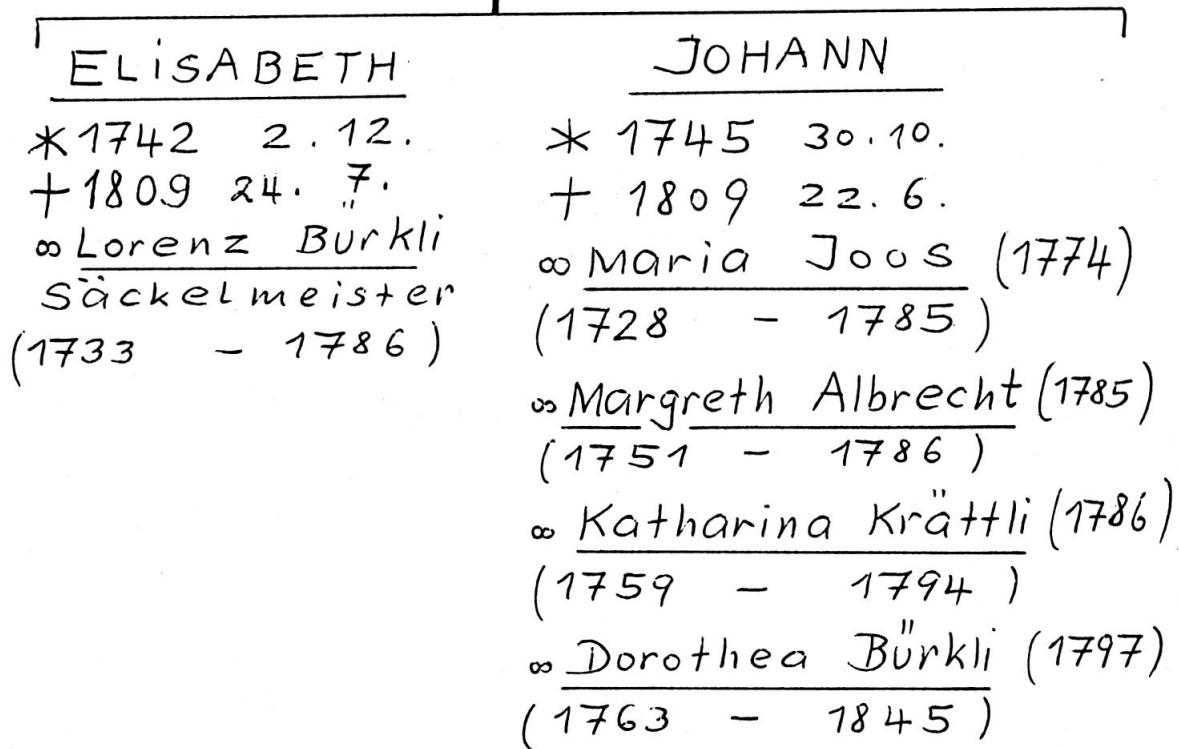 ELiSABETH
*1742 2.12.
+1809 24. 7.
∞ Lorenz Bürkli
Säckelmeister
(1733 - 1786)
JOHANN
* 1745 30.10.
+ 1809 22.6.
∞ Maria Joos (1774)
(1728 - 1785)
∞ Margreth Albrecht (1785)
(1751 - 1786)
∞ Katharina Krättli (1786)
(1759 - 1794)
∞ Dorothea Bürkli (1797)
(1763 - 1845)